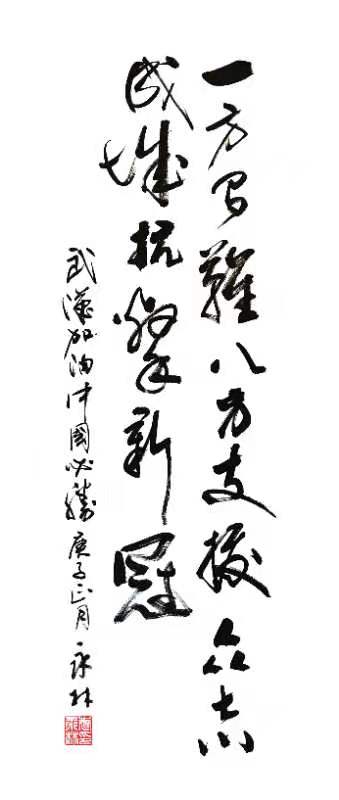 一方有難八方支援众志
成城抗擊新冠
武漢加油中國必勝 庚子正月 永林